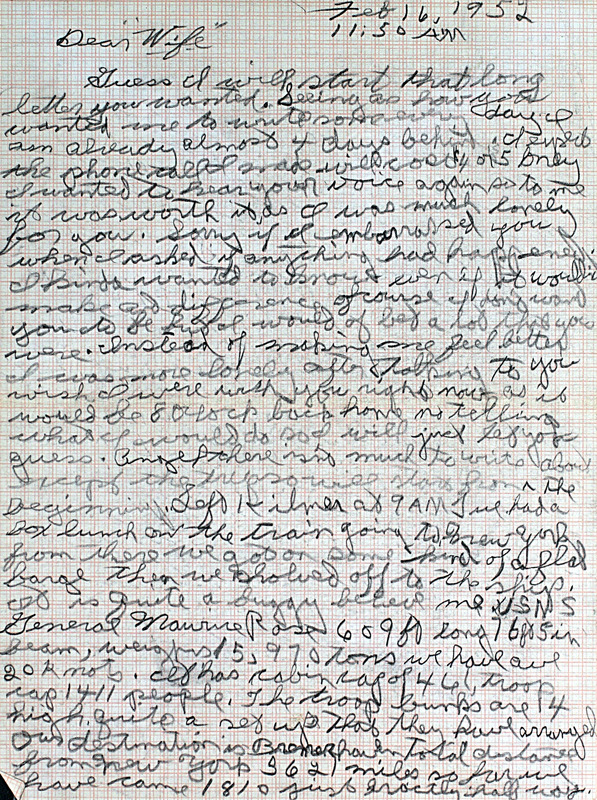 Feb 16, 1952
11:50 AM
Dear "Wife"
Guess I will start that long
letter you wanted. Seeing as how you
wanted me to write some every day I
am already almost 4 days behind. I
the phone call I made will cost $4 or 5 but
I wanted to hear your voice again so to me
it was worth it, as I was much lonely
for you. Sorry if I embarrased you
when I asked if anything had happened.
I kinda wanted to know even if it would
make a difference of course I dont want
you to be but I would of bet a lot that you
were. Instead of making me feel better
I was more lonely after talking to you
wish I were with you right now as it
would be 8 O'clock back home no telling
what I would do so I will just let you
guess. Angel there is so much to write about
except the trip so will start from the
beginning. Left Kilmer at 9 AM Tue had a
box lunch on the train going to New York
from there we got on some kind of a flat
barge then we shoved off to the ship.
It is quite a buggy believe me USNS
General Maurice Rose 609 ft long 76 ft 5 in
beam, weighs 15,970 tons we have ave
20 knots. It has cabin cap of 461, troop
cap 1411 people. The troop bunks are 4
high, quite a set up that they have arranged
Our destination is Bremerhaven total distance
from New York 3621 miles so far we
have come 1810 just exactly half way.